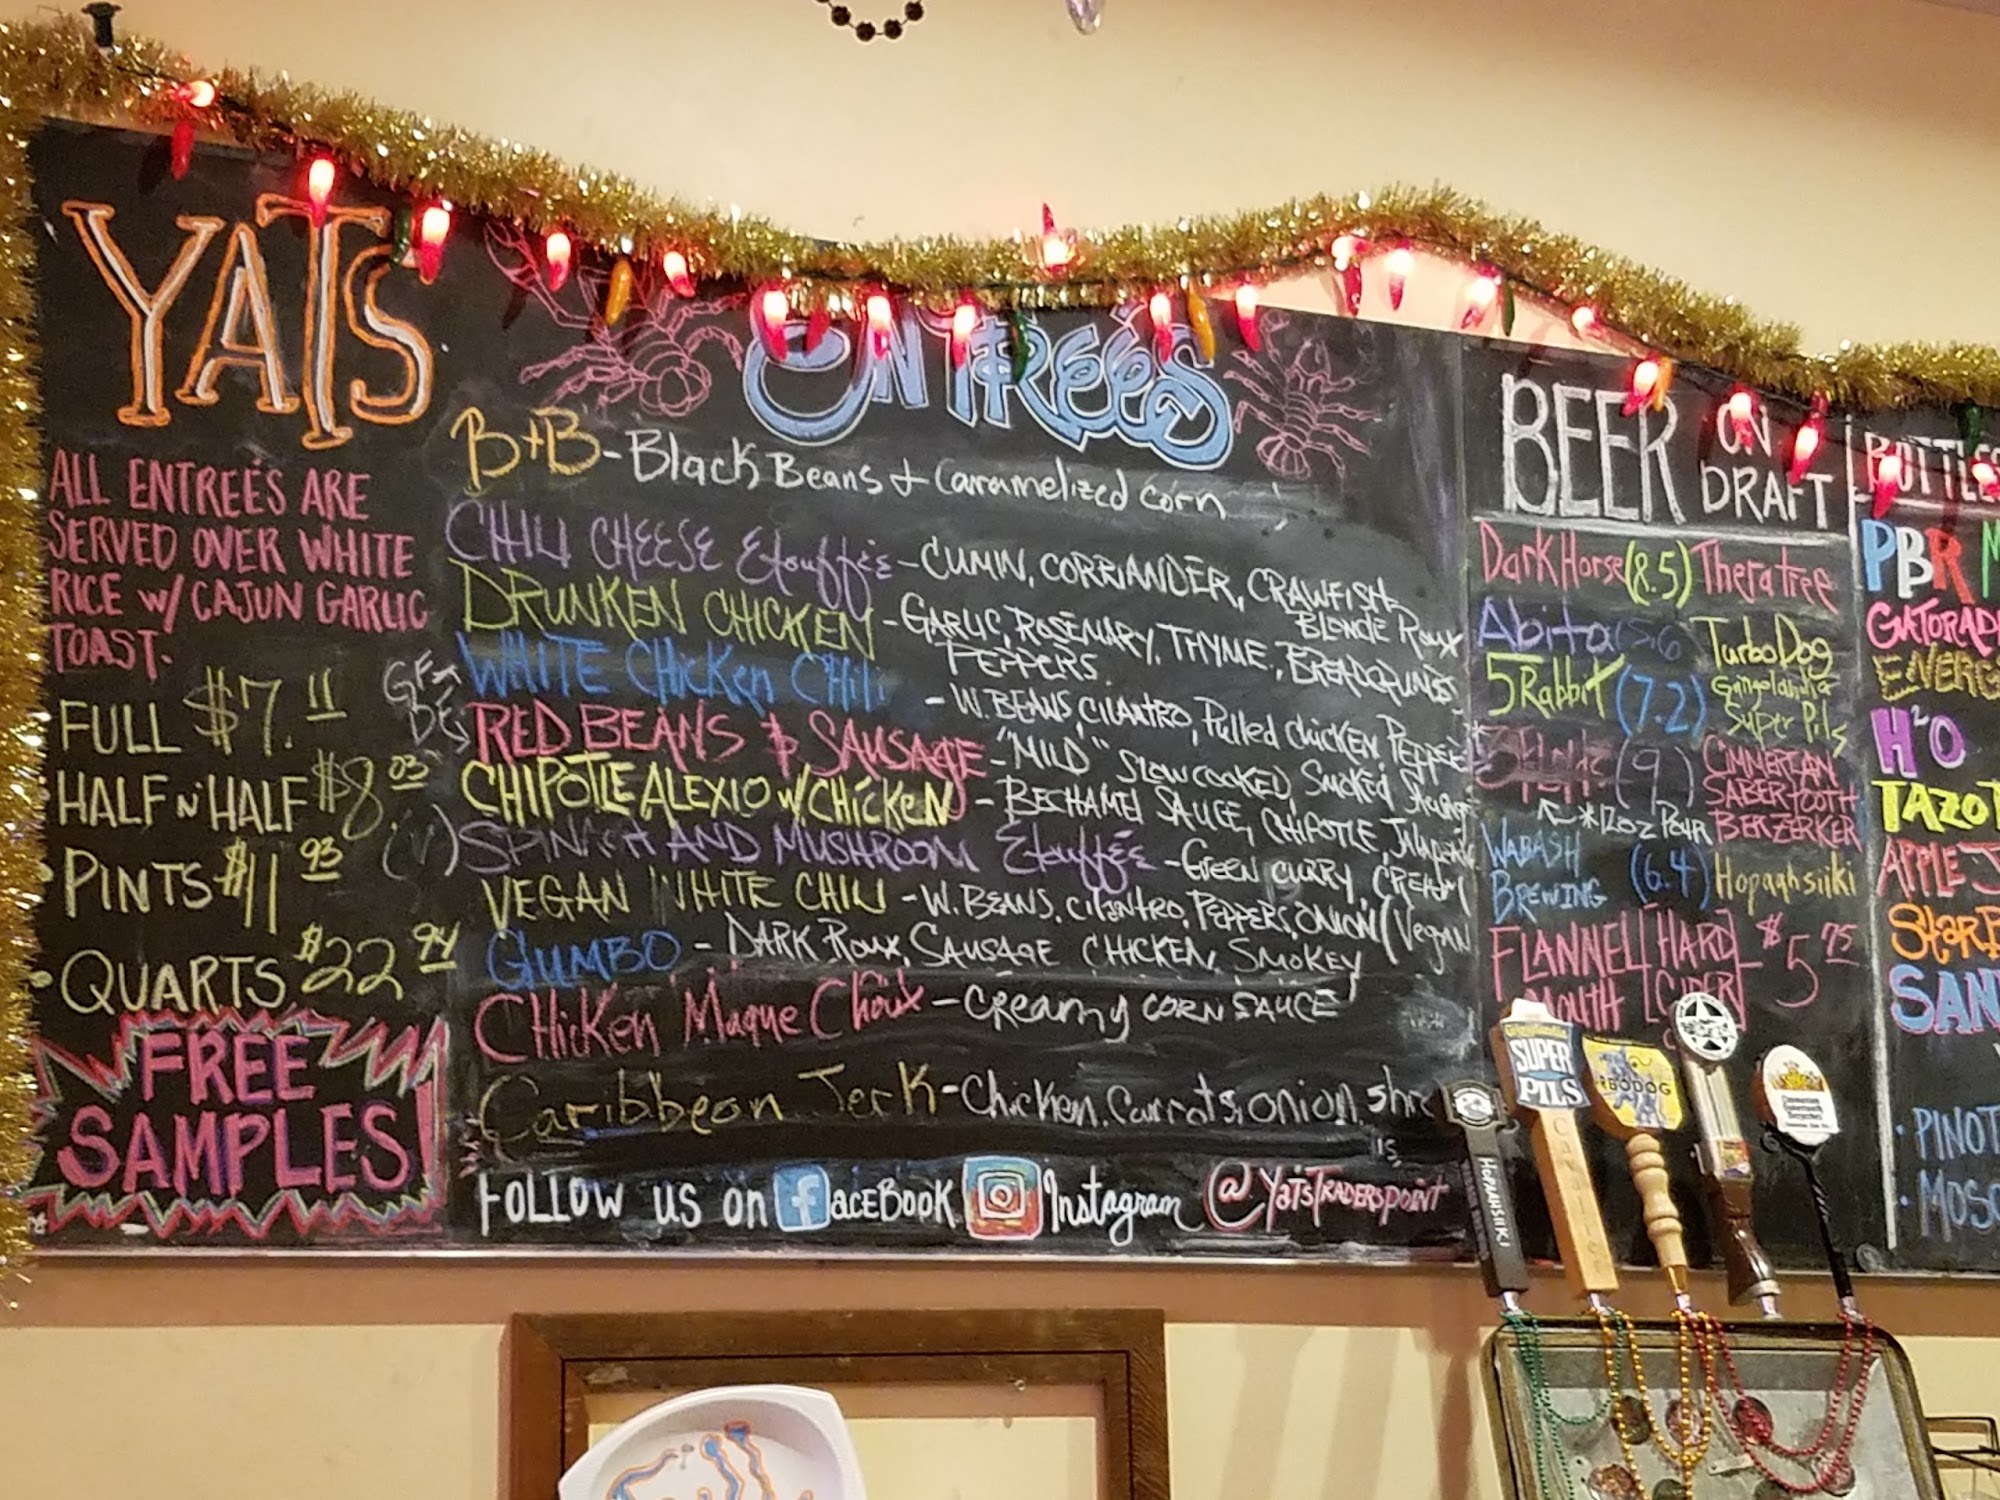 YATS
ALL ENTREÉS ARE
SERVED OVER WHITE
RICE W/ CAJUN GARLIC
TOAST.
FULL $7.11
HALF N' HALF $8.03
PINTS $11.93
QUARTS $22.94
FREE
SAMPLES
ENTREÉS
B+B - Black Beans + Caramelized Corn
CHILI CHEESE Etouffée - CUMIN, CORRIANDER, CRAWFISH,
BLONDE ROUX
DRUNKEN CHICKEN - GARLIC, ROSEMARY, THYME,
PEPPERS
WHITE CHICKEN CHILI - W. BEANS, CILANTRO, Pulled Chicken, PEPPERS
RED BEANS & SAUSAGE - "MILD" SLOW COOKED, SMOKED
CHIPOTLE ALEXIO W/ CHICKEN - BECHAMEL SAUCE, CHIPOTLE,
(V) SPINACH AND MUSHROOM Etouffée - GREEN CURRY, CREAM
VEGAN WHITE CHILI - W. BEANS, CILANTRO, PEPPERS, ONION (Vegan
GUMBO - DARK ROUX, SAUSAGE CHICKEN, SMOKEY
CHICKEN Maque Choux - CREAMY CORN SAUCE
Caribbean Jerk - Chicken, Carrots, onion,
FOLLOW US ON FACEBOOK Instagram @YATSTRADERSPOINT
BEER ON DRAFT
Dark Horse (8.5) Thera tree
Abita TURBO DOG
5 Rabbit (7.2) Super Pils
(9) CIMMERIAN
SABERTOOTH
*12oz POUR BERZERKER
WABASH
BREWING (6.4) Hopaahsiiki
FLANNEL MOUTH [HARD CIDER] - $5.75
PBR
H2O
SUPER
PILS
CANUTICE
HOPAHSIIKI